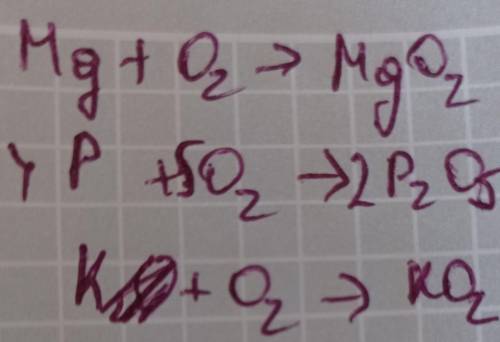 Mg + O₂ → MgO₂
4P + 5O₂ → 2P₂O₅
K + O₂ → KO₂